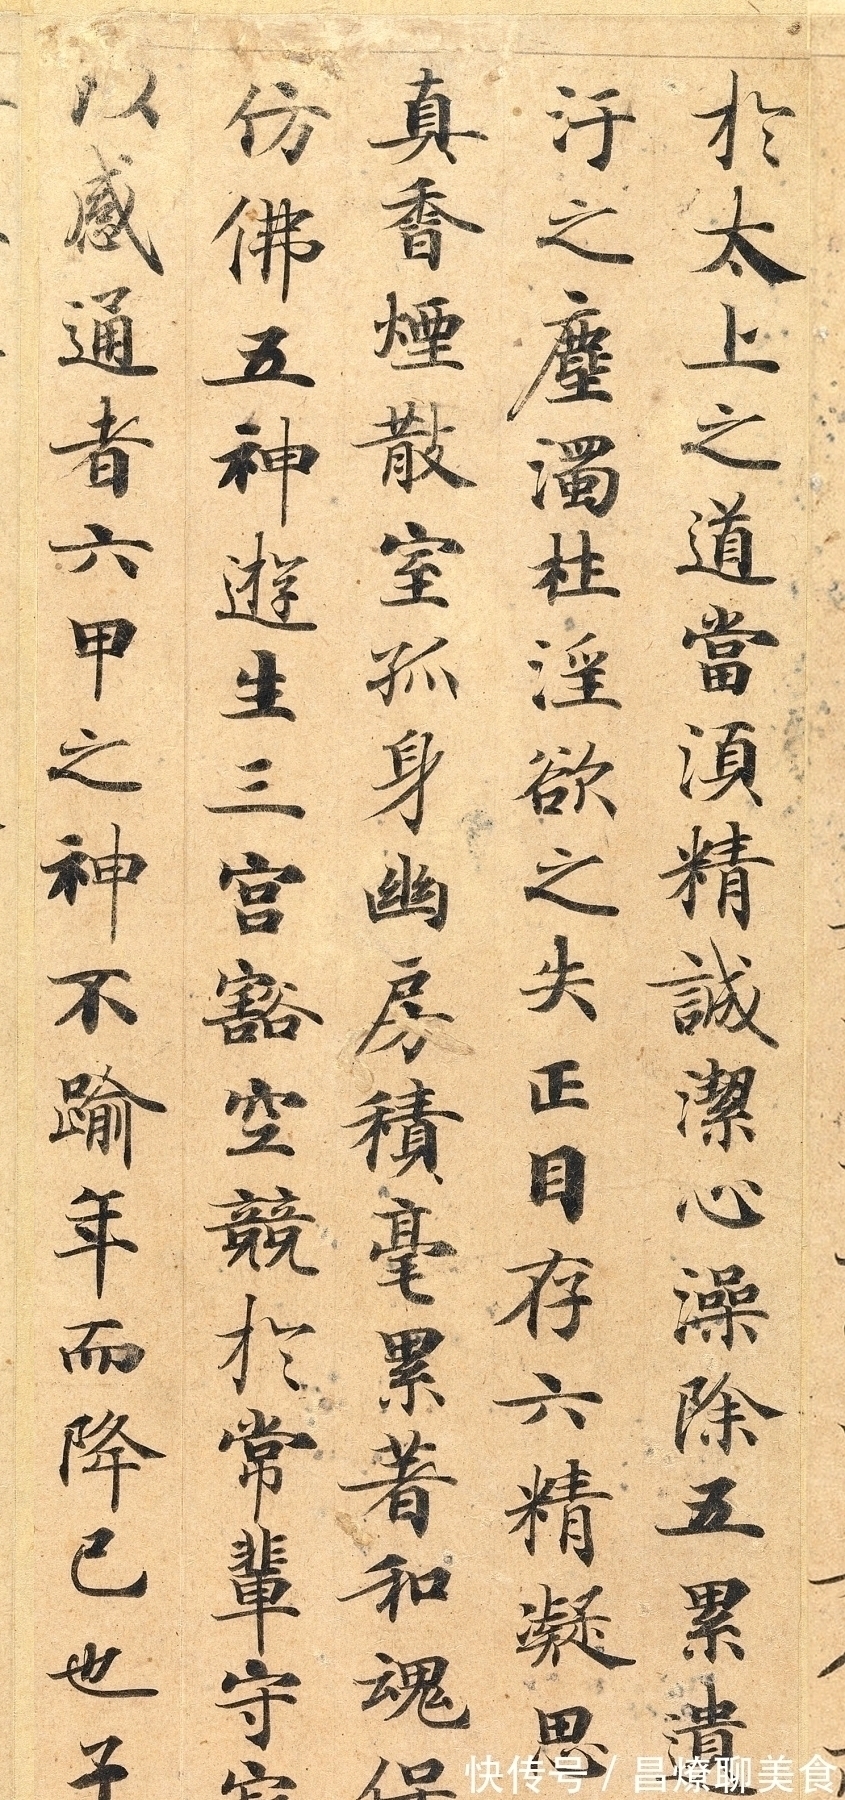 於太上之道當須精誠潔心澡除五累遺
汙之塵濁杜淫欲之失正目存六精凝思
真香煙散室孤身幽房積毫累著和魂保
仿佛五神遊生三宮豁空競於常輩守寂
以感通者六甲之神不踰年而降已也子
快传号 / 昌燎聊美食